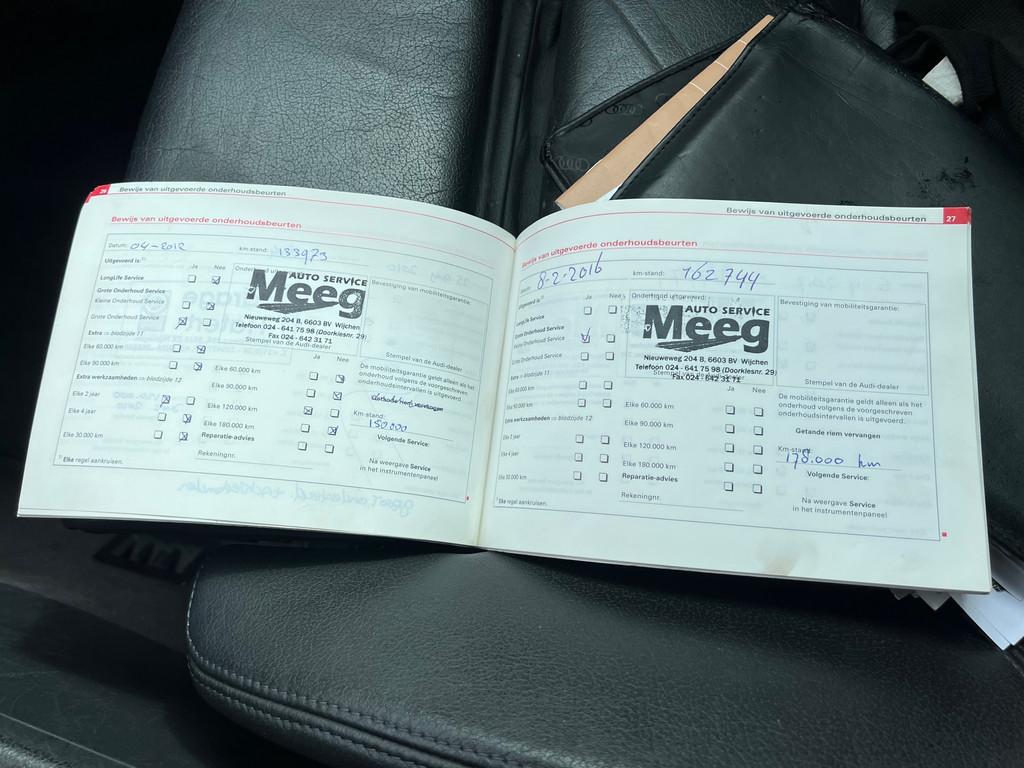 26 Bewijs van uitgevoerde onderhoudsbeurten
Bewijs van uitgevoerde onderhoudsbeurten
Datum: 04-2012 km-stand: 133973
Uitgevoerd is:
Ja Nee
LongLife Service
Grote Onderhoud Service
Kleine Onderhoud Service
Grote Onderhoud Service
Extra ⇒ bladzijde 11
Elke 60.000 km
Elke 90.000 km
Extra werkzaamheden ⇒ bladzijde 12
Elke 2 jaar
Elke 4 jaar
Elke 30.000 km
Elke regel aankruisen.
AUTO SERVICE
Meeg
Nieuweweg 204 B, 6603 BV Wijchen
Telefoon 024 - 641 75 98 (Doorkiesnr. 29)
Fax 024 - 642 31 71
Stempel van de Audi-dealer
Ja Nee
Elke 60.000 km
Elke 90.000 km
Elke 120.000 km
Elke 180.000 km
Reparatie-advies
Rekeningnr.
Bevestiging van mobiliteitsgarantie:
Stempel van de Audi-dealer
De mobiliteitsgarantie geldt alleen als het
onderhoud volgens de voorgeschreven
onderhoudsintervallen is uitgevoerd.
Getande riem vervangen
Km-stand:
150.000
Volgende Service:
Na weergave Service
in het instrumentenpaneel
Bewijs van uitgevoerde onderhoudsbeurten 27
Bewijs van uitgevoerde onderhoudsbeurten
8-2-2016 km-stand: 162744
Ja Nee
LongLife Service
Grote Onderhoud Service
Kleine Onderhoud Service
Grote Onderhoud Service
Extra ⇒ bladzijde 11
Elke 60.000 km
Elke 90.000 km
Extra werkzaamheden ⇒ bladzijde 12
Elke 2 jaar
Elke 4 jaar
Elke 30.000 km
Elke regel aankruisen.
Onderhoud uitgevoerd:
AUTO SERVICE
Meeg
Nieuweweg 204 B, 6603 BV Wijchen
Telefoon 024 - 641 75 98 (Doorkiesnr. 29)
Fax 024 - 642 31 71
Ja Nee
Elke 60.000 km
Elke 90.000 km
Elke 120.000 km
Elke 180.000 km
Reparatie-advies
Rekeningnr.
Bevestiging van mobiliteitsgarantie:
Stempel van de Audi-dealer
De mobiliteitsgarantie geldt alleen als het
onderhoud volgens de voorgeschreven
onderhoudsintervallen is uitgevoerd.
Getande riem vervangen
Km-stand:
178.000 km
Volgende Service:
Na weergave Service
in het instrumentenpaneel